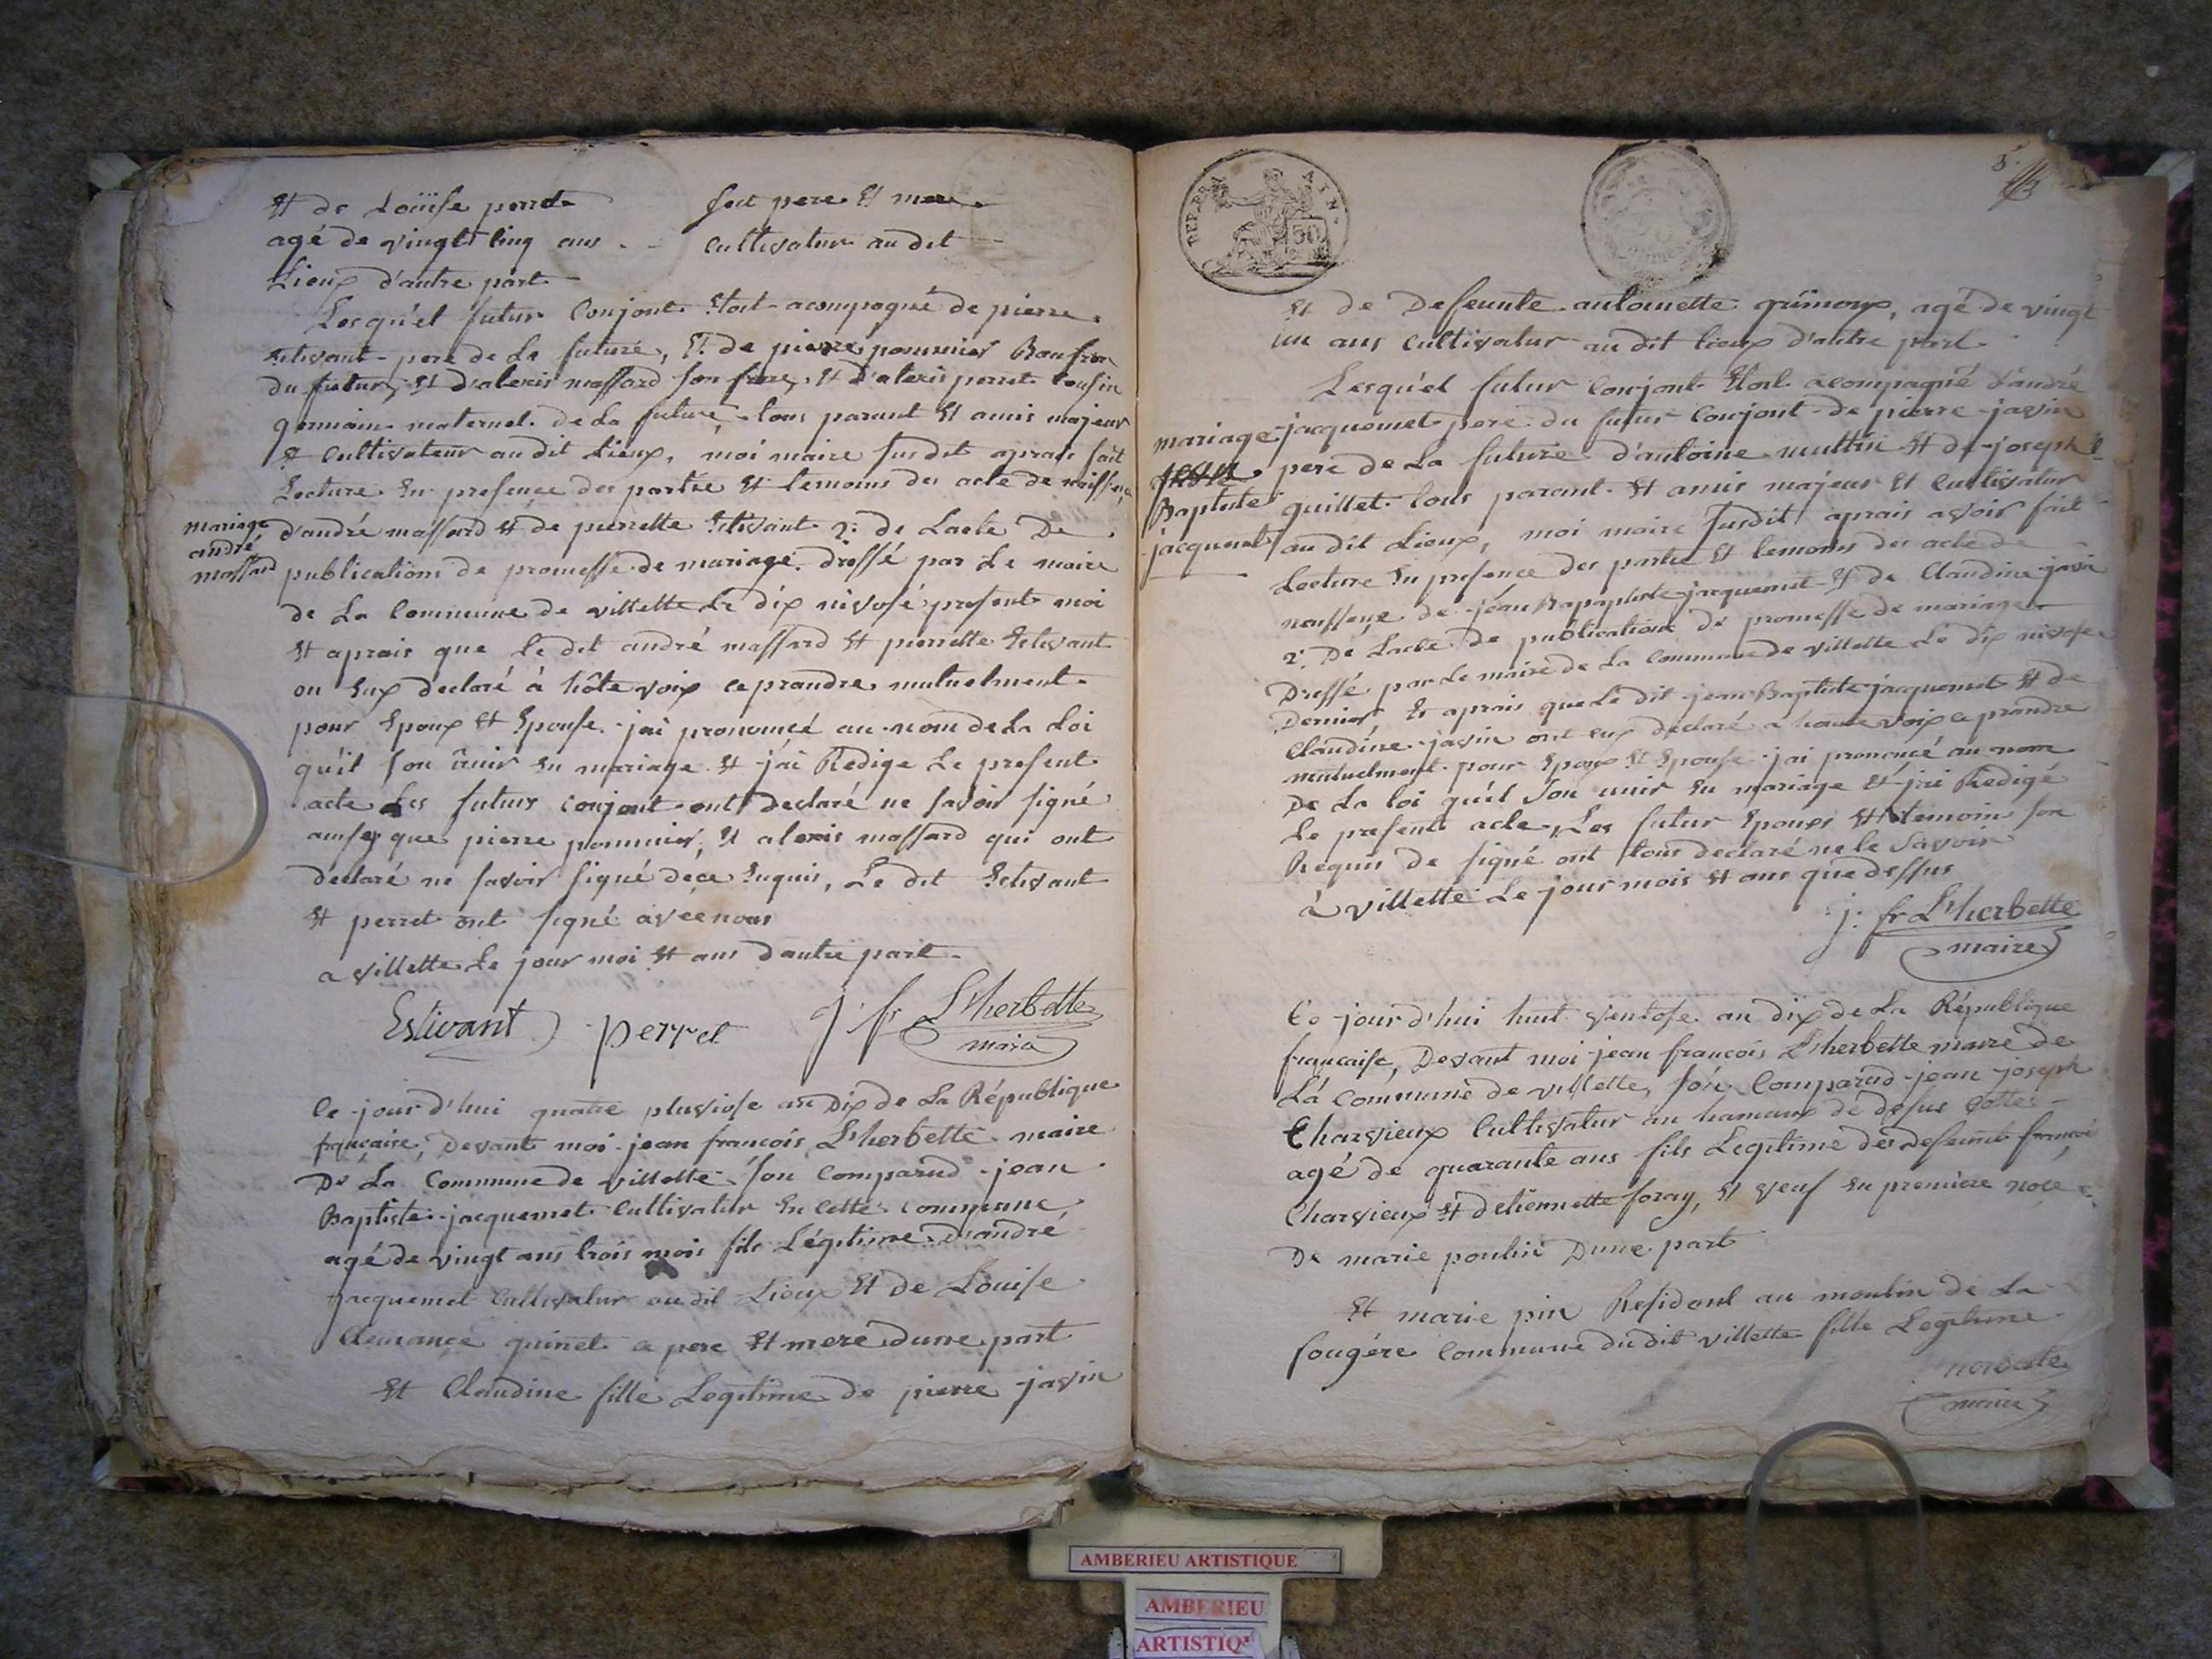 Et de Loüise perret fut pere Et mere
agé de vingt Cinq ans cultivatur au dit
Lieux d'autre part
Lesqu'el futur Conjont Etoit acompagné de pierre
Estivant pere de La future, Et de pierre pommier Baufrer
du futur, Et d'alexis massard son frere, Et d'alexis perret Cousin
germain maternel de La future, tous parant Et amis majeur
Et Cultivateur au dit Lieux, moi maire susdit aprais fait
Lecture En presence des partie Et temoins des acte de naissence
mariage
andré
massard
d'andré massard Et de pierrette Estivant 2: de Lacte De
publications de promesse de mariage dressé par Le maire
de La Commune de villette Le dix nivose present moi
Et aprais que Le dit andré massard Et pierrette Estivant
on Eux declaré à hôte voix ce prandre mutuelment
pour Epoux Et Epouse j'ai prononcé au nom de La Loi
qu'il son unir En mariage Et j'ai Redige Le present
acte Les futurs conjont ont declaré ne savoir signé
ainsy que pierre pommier, Et alexis massard qui ont
declaré ne savoir signé dece Enquis, Le dit Estivant
Et perret ont signé avec nous
a villette Le jour moi Et ans d'autre part
Estivant perret j. fr. L'herbette
maire
Ce jour d'hui quatre pluviose an Dix de La République
française, Devant moi jean françois L'herbette maire
De La Commune de villette son Comparud jean
Baptiste jacquemet Cultivatur En Cette commune
agé de vingt ans trois mois fils Légitime d'andré
jacquemet Cultivatur au dit Lieux Et de Louise
Clemance quinet a pere Et mere d'une part
Et Claudine fille Legitime de pierre javin
DEP. DE L'AIN.
50
5.
Et de Defeunte antoinette grimoux, agé de vingt
un ans Cultivatur au dit lieux d'autre part
Lesqu'el futur Conjont Etoit acompagné d'andré
mariage
Baptiste
jacquemet
jacquemet pere du futur Conjont de pierre javin
pere de La future d'antoine muttin Et de joseph
guillet tous parant Et amis majeur Et Cultivatur
au dit Lieux, moi maire susdit aprais avoir fait
Lecture En presence des partie Et temoins des acte de
naissence de jean Bapaptiste jacquemet Et de Claudine javin
2: De Lacte de publication de promesse de mariage
Dressé par Le maire de La Commune de villette Le dix nivose
Dernier Et aprais que Le dit jean Baptiste jacquemet Et de
Claudine javin ont eux declaré a haute voix ce prandre
mutuelment pour Epoux Et Epouse j'ai prononcé au nom
De La loi qu'il son unir En mariage Et j'ai Redigé
Le present acte, Les futur Epouxs Et temoin son
Requis de signé ont tous declaré ne le savoir
à villette Le jour mois Et ans que dessus
j. fr L'herbette
maire
Ce jour d'hui huit ventose an dix de La République
francaise, Devant moi jean françois L'herbette maire de
La Commune de villette, son Comparud jean joseph
Charvieux Cultivatur au hamaux de desus Cotte
agé de quarante ans fils Legitime de Defeunt francois
Charvieux Et d'etiennette foray, Et veuf En première noce
De marie poulin D'une part
Et marie pin Residant au moulin de La
fougére Commune dudit villette fille Legitime
herbette
maire
AMBERIEU ARTISTIQUE
AMBERIEU
ARTISTIQ